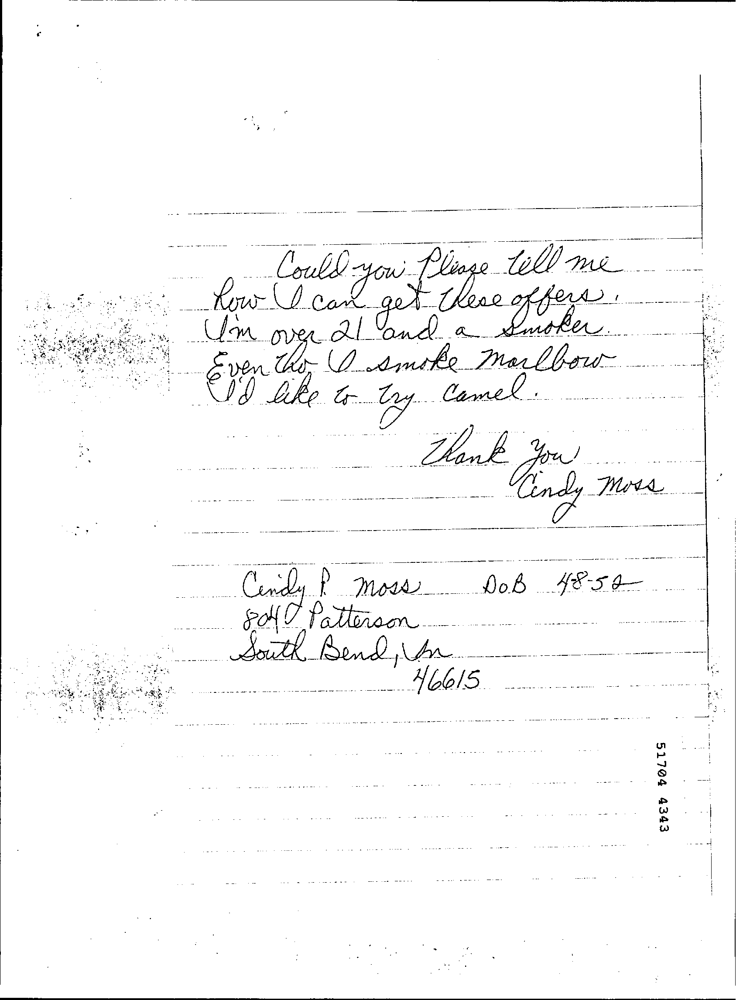 Could you Please tell me
how I can get these offers.
I'm over 21 and a smoker.
Even tho I smoke Marlbow
I'd like to try Camel.
Thank you
Cindy Moss
Cindy P. Moss DoB 4-8-52
Patterson
South Bend, In
46615
51704 4343